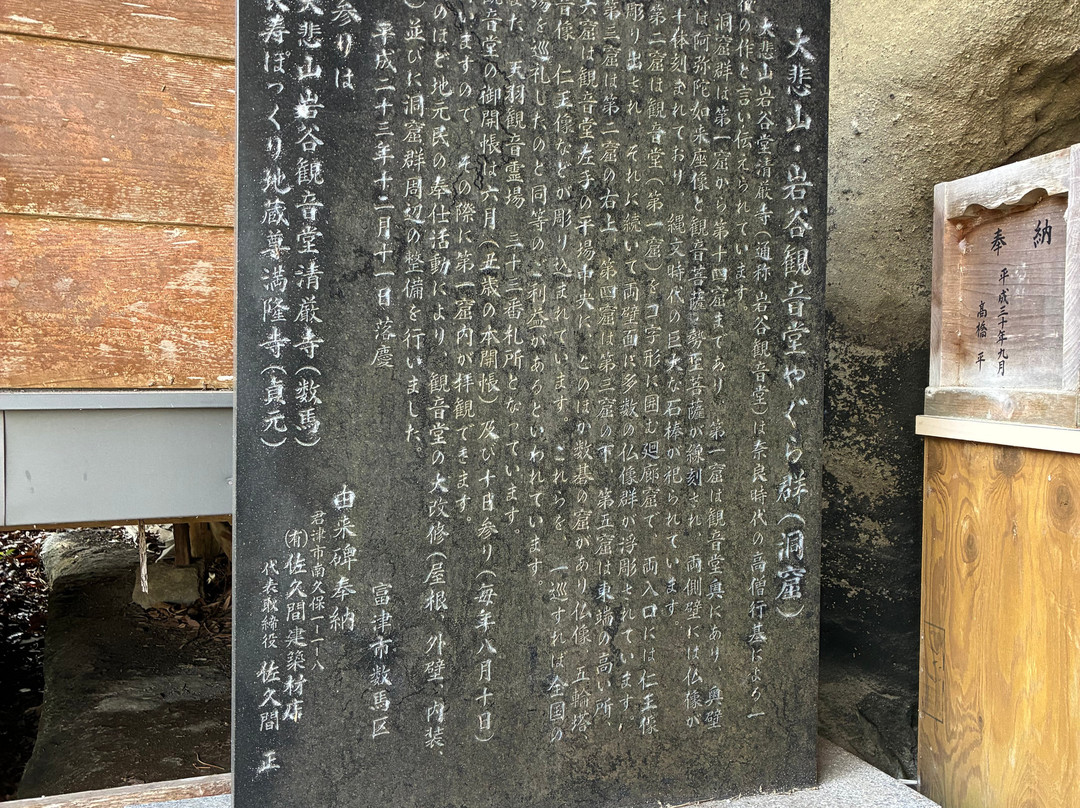 大悲山・岩谷観音堂やぐら群(洞窟)
大悲山岩谷堂清厳寺(通称 岩谷観音堂)は奈良時代の高僧行基による一
の作と言い伝えられています。
洞窟群は第一窟から第十四窟まであり、第一窟は観音堂奥にあり、奥壁
は阿弥陀如来座像と観音菩薩・勢至菩薩が線刻され、両側壁には仏像が
十体刻まれており、縄文時代の巨大な石棒が祀られています。
第二窟は観音堂(第一窟)をコ字形に囲む廻廊窟で、両入口には仁王像
彫り出され、それに続いて両壁面に多数の仏像群が浮彫されています。
第三窟は第二窟の右上、第四窟は第三窟の下、第五窟は東端の高い所、
窟は観音堂左手の平場中央に、このほか数基の窟があり仏像、五輪塔、
音像、仁王像などが彫り込まれています。これらを、一巡すれば全国の
場を巡礼したのと同等のご利益があるといわれています。
また、天羽観音霊場 三十三番札所となっています。
観音堂の御開帳は六月(丑歳の本開帳)及び十日参り(毎年八月十日)
いますので、その際に第一窟内が拝観できます。
のほど地元民の奉仕活動により、観音堂の大改修(屋根、外壁、内装
)並びに洞窟群周辺の整備を行いました。
平成二十三年十二月十一日 落慶
富津市数馬区
参りは
大悲山岩谷観音堂清厳寺(数馬)
長寿ぽっくり地蔵尊満隆寺(貞元)
由来碑奉納
君津市南久保一ー一ー八
(有)佐久間建築材店
代表取締役 佐久間 正
奉納
平成三十年九月
高橋 平